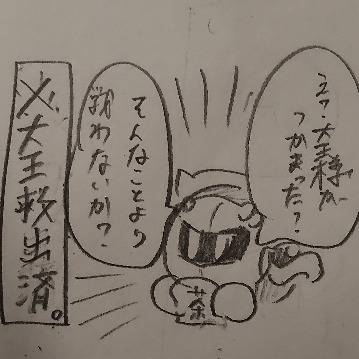 えっ、大王様が
つかまった?
そんなことより
戦わないか?
※大王救出済。
茶